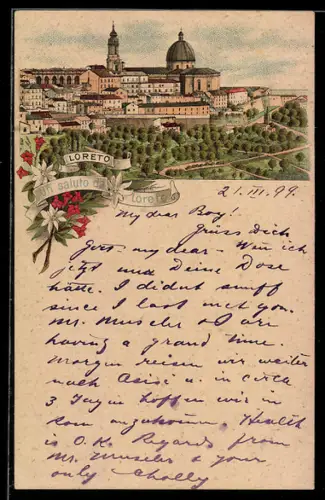 LORETO
Un saluto da
Loreto
21. III. 99.
My dear Boy!
Grüss dich
Gott - my dear - Wenn ich
jetzt nur Deine Dose
hätte. I didn't snuff
since I last met you.
Mr. Muscler & I are
having a grand time.
Morgen reisen wir weiter
nach Asisi u. in circa
3 Tagen hoffen wir in
Rom anzukommen. Health
is O.K. Regards from
Mr. Muscler & your
only Cholly